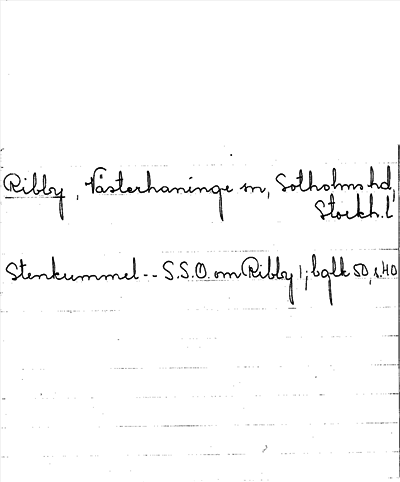 Ribby, Västerhaninge sn, Sotholms hd,
Stockh. l
Stenkummel -- S.S.O. om Ribby 1; bglk 50, s. 40